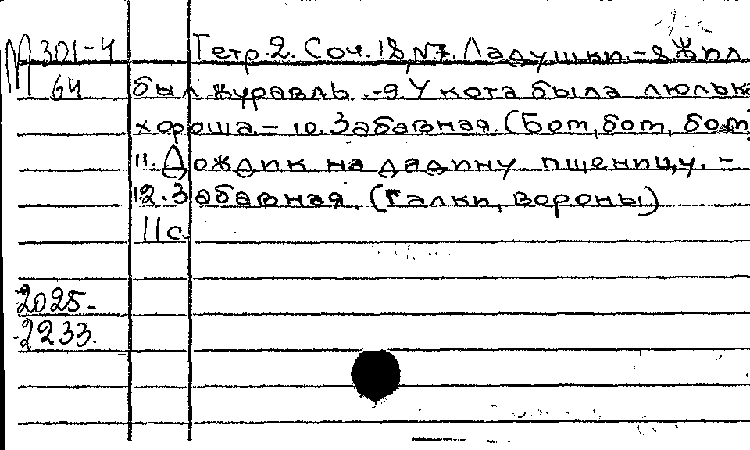 М 301-4
64
Тетр.2. Соч.18, №7. Ладушки.-8 Жил
был журавль. -9. У кота была люлька
хороша. - 10. Забавная. (Бот, бот, бот)
11. Дождик на дядину пшеницу. -
12. Забавная. (Галки, вороны)
11с.
2025-
2233.